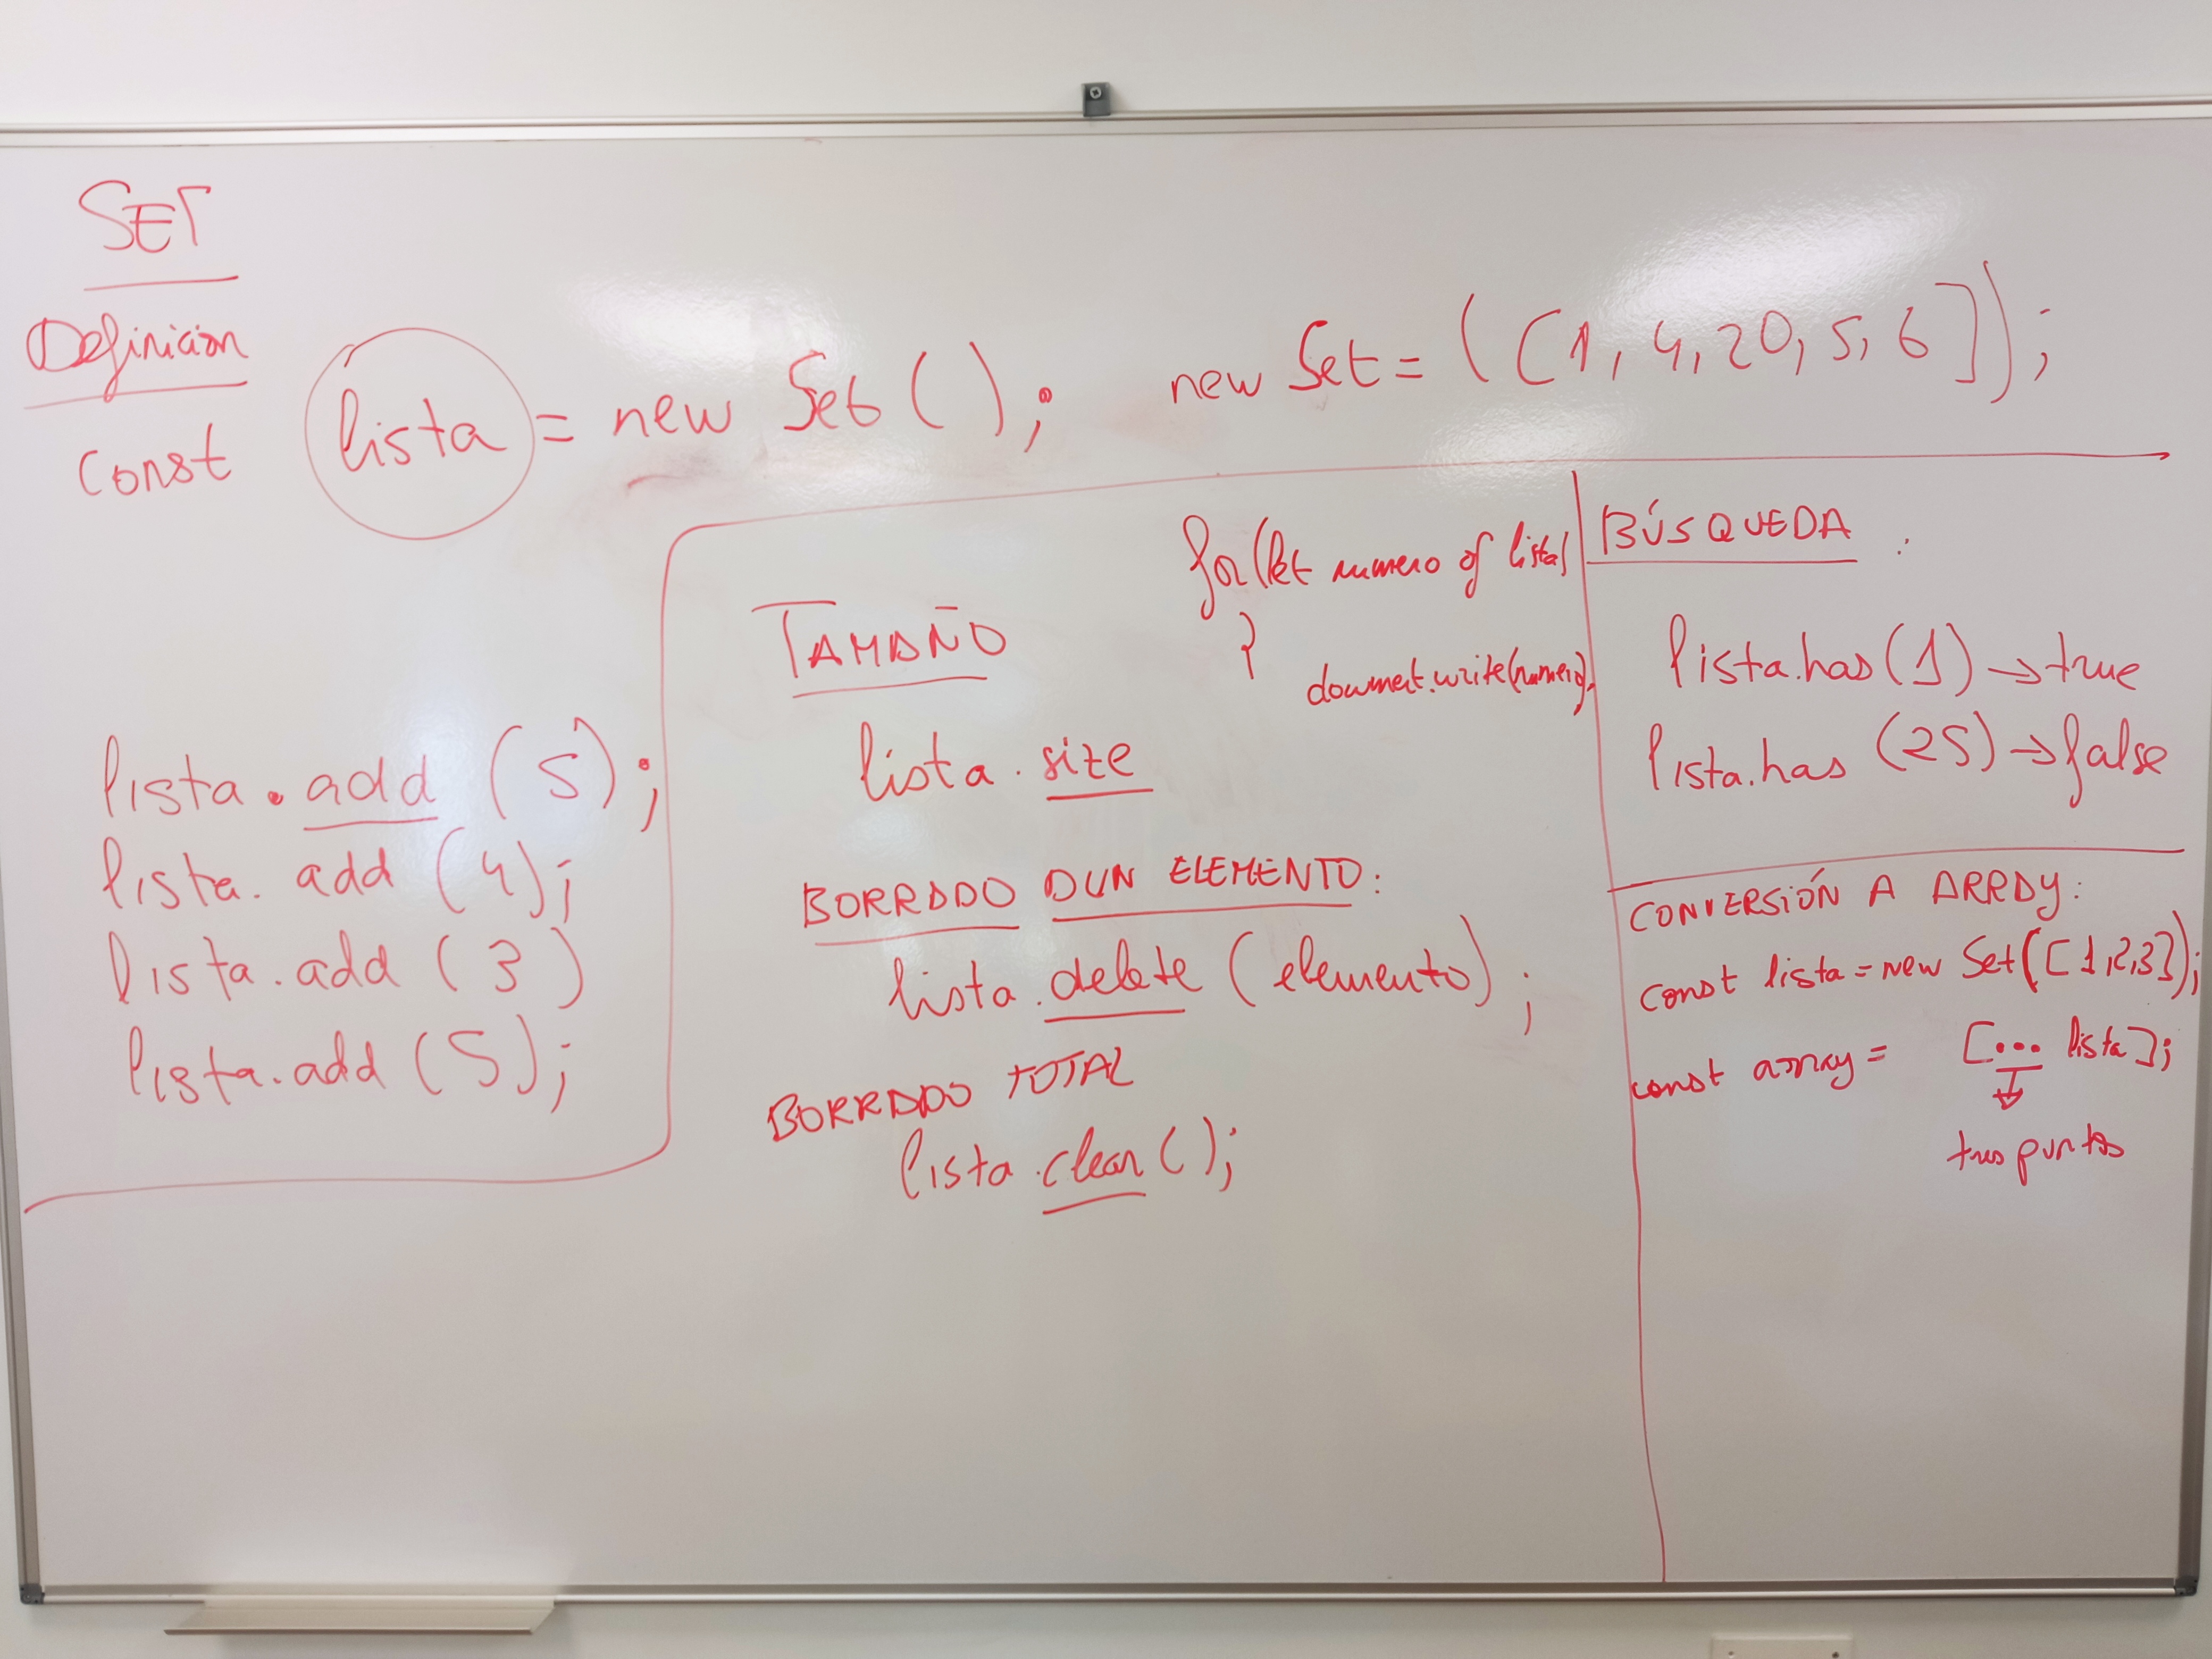 SET
Definición
const lista = new Set ( ); new Set = ([1, 4, 20, 5, 6]);
lista.add (5);
lista.add (4);
lista.add (3)
lista.add (5);
TAMAÑO
lista.size
for(let numero of lista)
{
document.write(numero);
BORRADO DUN ELEMENTO:
lista.delete (elemento);
BORRADO TOTAL
lista.clear ();
BÚSQUEDA :
lista.has (1) → true
lista.has (25) → false
CONVERSIÓN A ARRAY:
const lista = new Set([1,2,3]);
const array = [... lista];
tres puntos